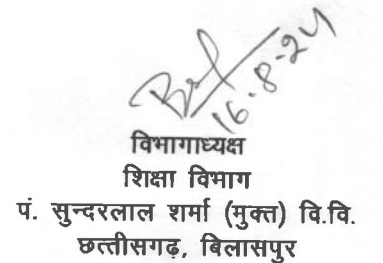 16-8-24
विभागाध्यक्ष
शिक्षा विभाग
पं. सुन्दरलाल शर्मा (मुक्त) वि.वि.
छत्तीसगढ़, बिलासपुर